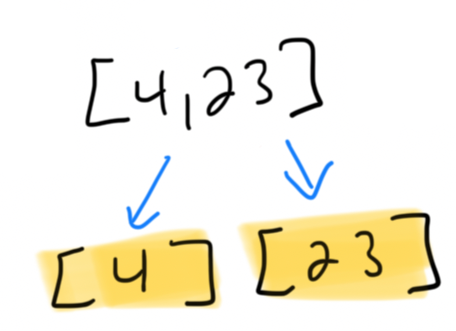 [4,23]
[4] [23]